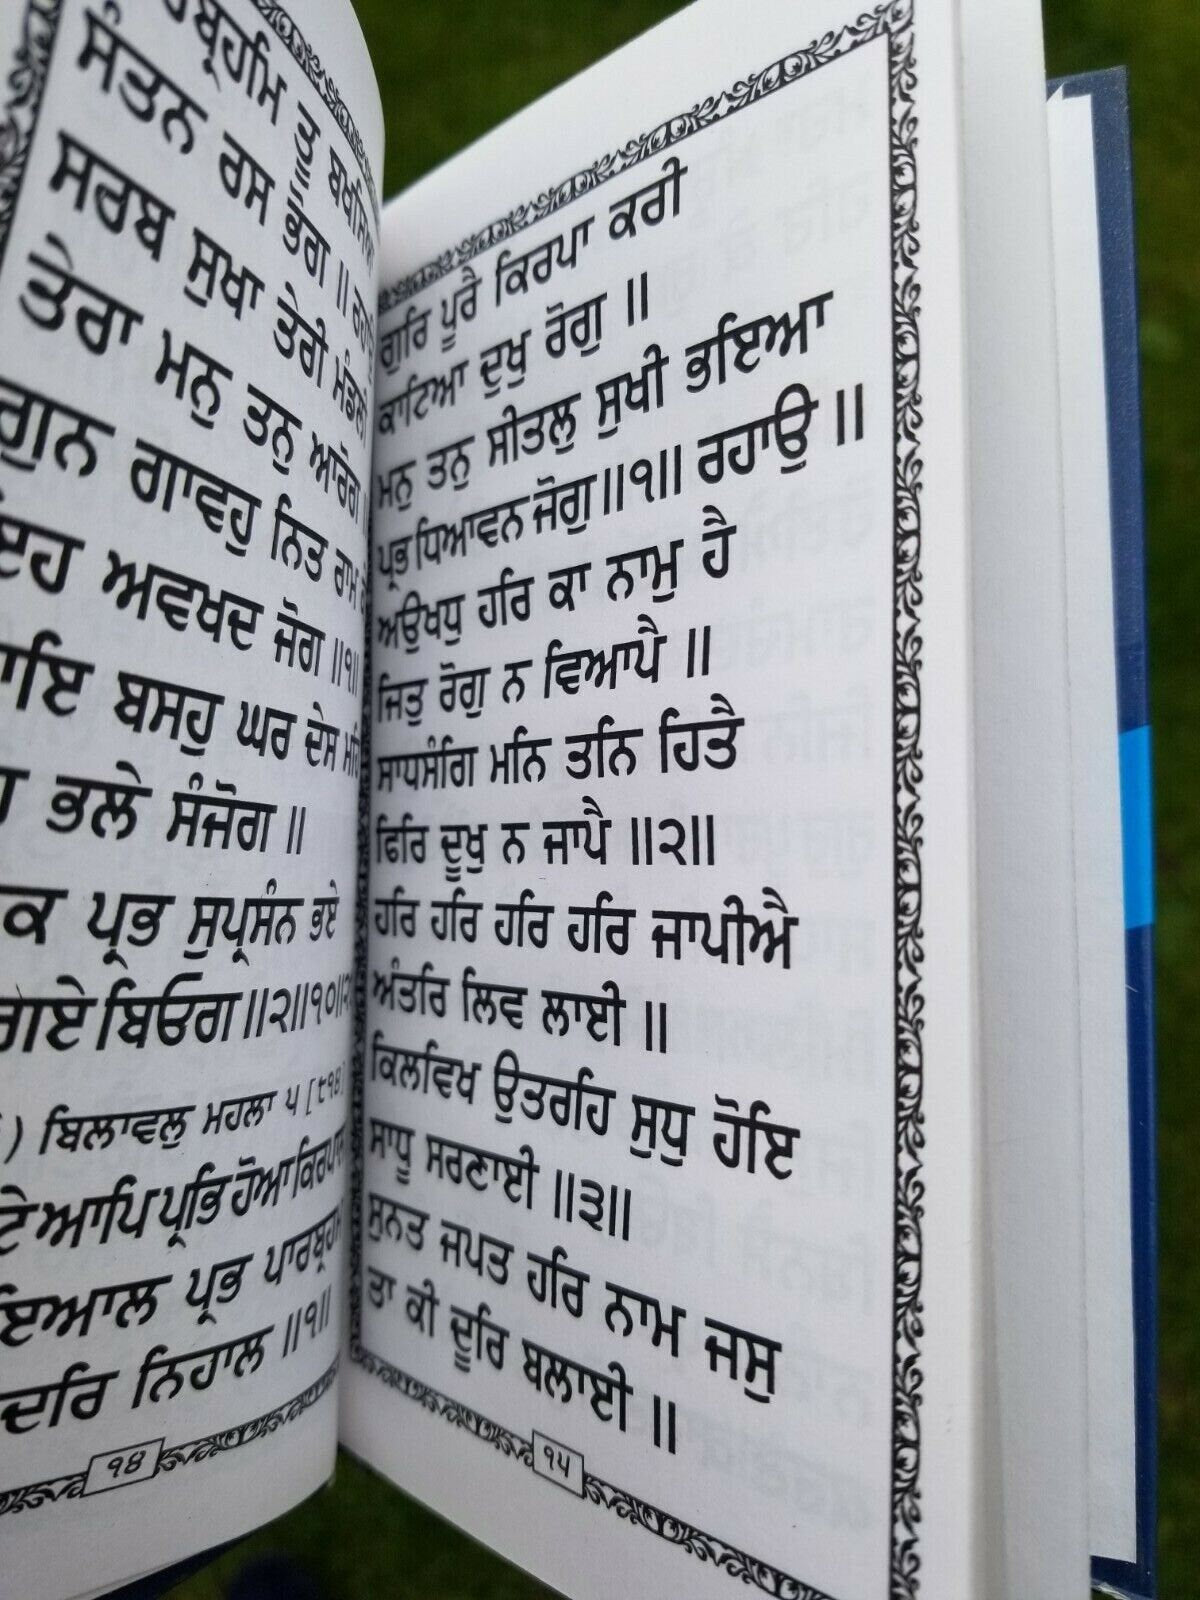 ਤੂ
ਸੰਤਨ ਰਸ ਭੋਗ ॥
ਸਰਬ ਸੁਖਾ ਤੇਰੀ ਮੰਡਲੀ
ਤੇਰਾ ਮਨੁ ਤਨੁ ਆਰੋਗ
ਗੁਨ ਗਾਵਹੁ ਨਿਤ ਰਾਮ
ਇਹ ਅਵਖਦ ਜੋਗ ॥੧॥
ਬਸਹੁ ਘਰ ਦੇਸ
ਭਲੇ ਸੰਜੋਗ ॥
ਪ੍ਰਭ ਸੁਪ੍ਰਸੰਨ ਭਏ
ਗਏ ਬਿਓਗ ॥੨॥੧੦॥
) ਬਿਲਾਵਲੁ ਮਹਲਾ ੫ [੮੧੪]
ਆਪਿ ਪ੍ਰਭਿ ਹੋਆ
ਪ੍ਰਭ
ਨਿਹਾਲ ॥੧॥
੧੪
ਗੁਰਿ ਪੂਰੈ ਕਿਰਪਾ ਕਰੀ
ਕਾਟਿਆ ਦੁਖੁ ਰੋਗੁ ॥
ਮਨੁ ਤਨੁ ਸੀਤਲੁ ਸੁਖੀ ਭਇਆ
ਪ੍ਰਭ ਧਿਆਵਨ ਜੋਗੁ ॥੧॥ ਰਹਾਉ ॥
ਅਉਖਧੁ ਹਰਿ ਕਾ ਨਾਮੁ ਹੈ
ਜਿਤੁ ਰੋਗੁ ਨ ਵਿਆਪੈ ॥
ਸਾਧਸੰਗਿ ਮਨਿ ਤਨਿ ਹਿਤੈ
ਫਿਰਿ ਦੂਖੁ ਨ ਜਾਪੈ ॥੨॥
ਹਰਿ ਹਰਿ ਹਰਿ ਹਰਿ ਜਾਪੀਐ
ਅੰਤਰਿ ਲਿਵ ਲਾਈ ॥
ਕਿਲਵਿਖ ਉਤਰਹਿ ਸੁਧੁ ਹੋਇ
ਸਾਧੂ ਸਰਣਾਈ ॥੩॥
ਸੁਨਤ ਜਪਤ ਹਰਿ ਨਾਮ ਜਸੁ
ਤਾ ਕੀ ਦੂਰਿ ਬਲਾਈ ॥
੧੫